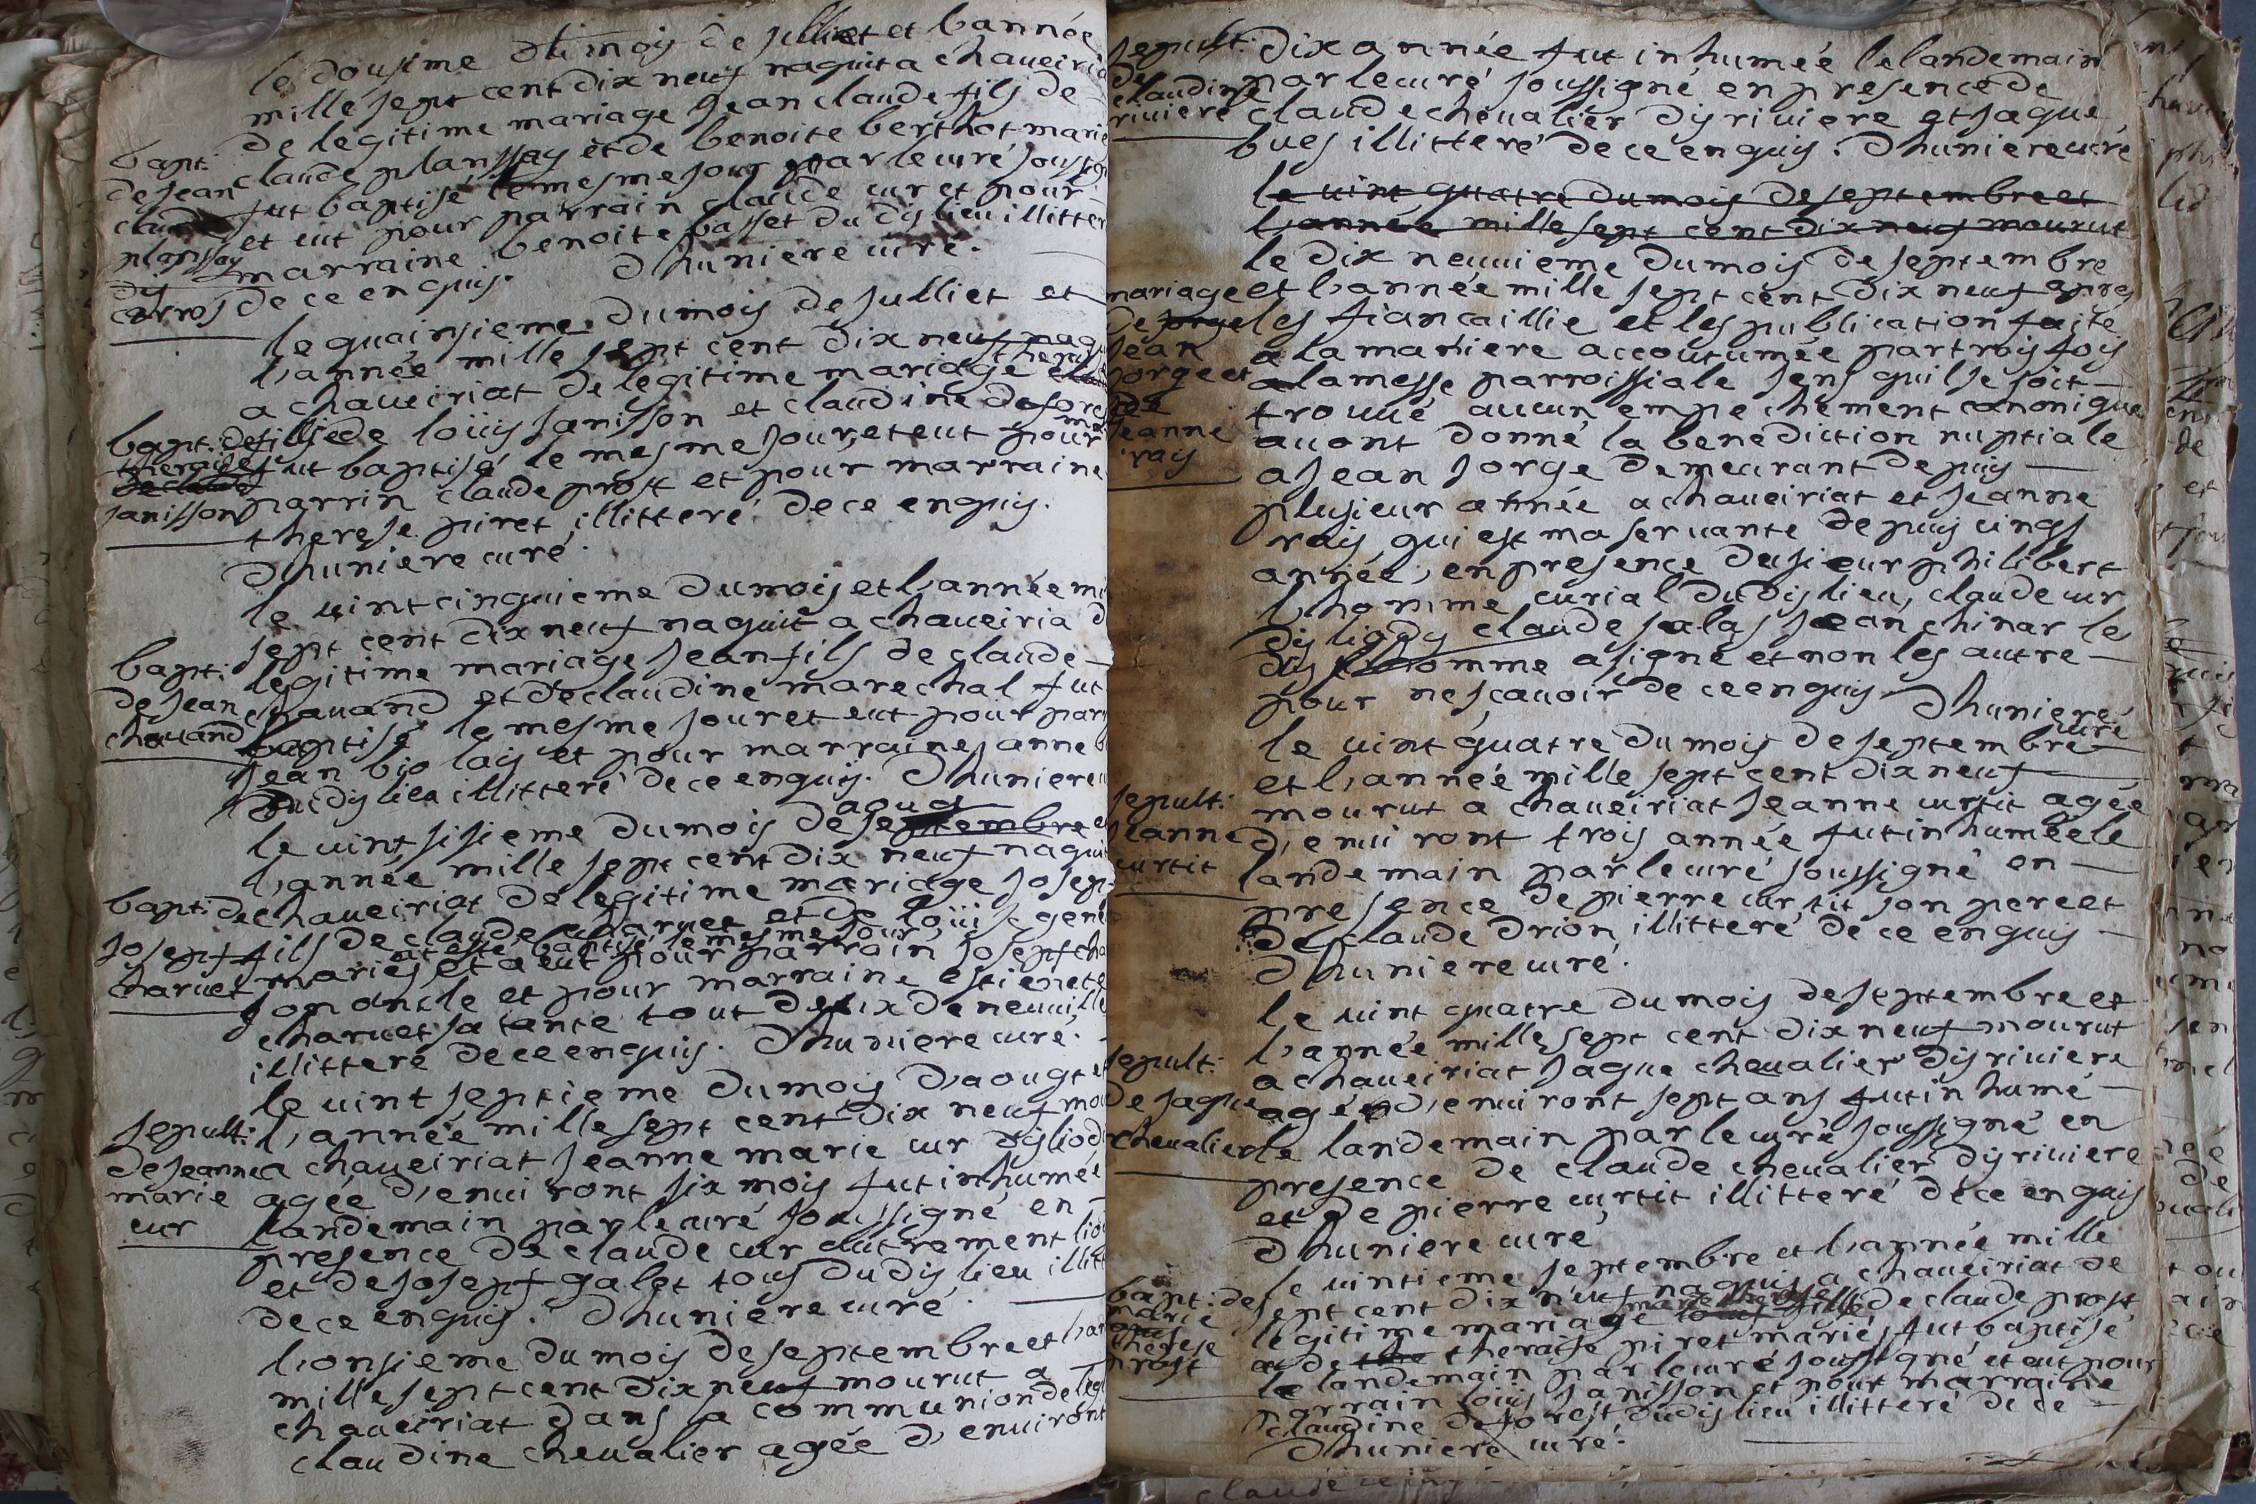 le dousime du mois de Julliet et l'année
mille sept cent dix neuf naquit a chaueiria
de legitime mariage Jean claude fils de
claude planssay et de benoite berthot marié
bapt: de Jean claude planssay dis carros
fut baptisé le mesme jour par le curé soussigné
et eut pour parrain claude cur et pour
marraine benoite basset du dis lieu illitteré
de ce enquis. Dhuniere curé.
le quainsieme du mois de Julliet et
l'année mille sept cent dix neuf naquit
a chaueiriat de legitime mariage therese
fillie de loüis Janisson et claudine deforest
bapt: de theraise Janisson
fut baptisé le mesme jour, et eut pour
parrin claude prost et pour marraine
therese piret illitteré de ce enquis.
Dhuniere curé.
le uint cinquieme du mois et l'année mille
sept cent dix neuf naquit a chaueiria de
legitime mariage Jean fils de claude
bapt: de Jean chauand
chauand et de claudine marechal fut
baptisé le mesme jour et eut pour parrain
Jean biolay et pour marraine Janne
du dis lieu illitteré de ce enquis. Dhuniere curé
aougt
le uint sisieme du mois de septembre et
l'année mille sept cent dix neuf naquit
a chaueiriat de legitime mariage Josepf
bapt: de Josepf charuet
fils de claude charuet et de loüise
mariés at esté baptisé le mesme jour
et a eut pour parrain Josepf charuet
son oncle et pour marraine estienette
charuet sa tante tout deux de neuuille
illitteré de ce enquis. Dhuniere curé.
le uint septieme du mois d'aougt et
l'année mille sept cent dix neuf mourut
sepult: de Jeanne marie cur
a chaueiriat Jeanne marie cur dis liody
agée d'enui ront six mois fut inhumée
landemain par le curé soussigné en
presence de claude cur autrement liody
et de Josepf galet tous du dis lieu illitteré
de ce enquis. Dhuniere curé
l'onsieme du mois de septembre et l'année
mille sept cent dix neuf mourut a
chaueiriat dans la communion de l'eglise
claudine cheualier agée d'enuiront
sepult: de claudine riuiere
dix année fut inhumée le landemain
par le curé soussigné en presence de
claude cheualier dis riuiere et Jaque
bues illitteré de ce enquis. Dhuniere curé
le uint quatre du mois de septembre et
l'année mille sept cent dix neuf mourut
le dix neuuieme du mois de septembre
mariage de Jorge Jean Jorge et de Jeanne ray
et l'année mille sept cent dix neuf apres
les fiancaillie et les publication faite
a la maniere accoutumée par troy foy
a la messe parroissiale sens quil se soit
trouué aucun empechement canonique
auont donné la benediction nuptiale
a Jean Jorge demeurant depuis
plusieur année a chaueiriat et Jeanne
ray, qui est ma seruante depuis uingt
année, en presence du sieur philibert
l'homme curial du dis lieu, claude cur
dis liody claude salas Jean chinar le
dis l'homme a signé et non les autre
pour ne scauoir de ce enquis Dhuniere
curé
le uint quatre du mois de septembre
et l'année mille sept cent dix neuf
sepult: Jeanne curtit
mourut a chaueiriat Jeanne curtit agée
d'enui ront trois année fut inhumée le
landemain par le curé soussigné en
presence de pierre curtit son pere et
de claude drion illitteré de ce enquis
Dhuniere curé.
le uint quatre du mois de septembre et
l'année mille sept cent dix neuf mourut
sepult: de Jaque cheualier
a chaueiriat Jaque cheualier dis riuiere
agé d'enui ront sept ans fut inhumé
le landemain par le curé soussigné en
presence de claude cheualier dis riuiere
et de pierre curtit illitteré de ce enquis
Dhuniere curé
le uintieme septembre et l'année mille
bapt: de marie therese prost
sept cent dix neuf naquis a chaueiriat de
legitime mariage marie therese fille de claude prost
a de theraise piret marié, fut baptisé
le landemain par le curé soussigné et eut pour
parrain louis Janisson et pour marraine
claudine deforest du dis lieu illitteré de ce
Dhuniere curé.